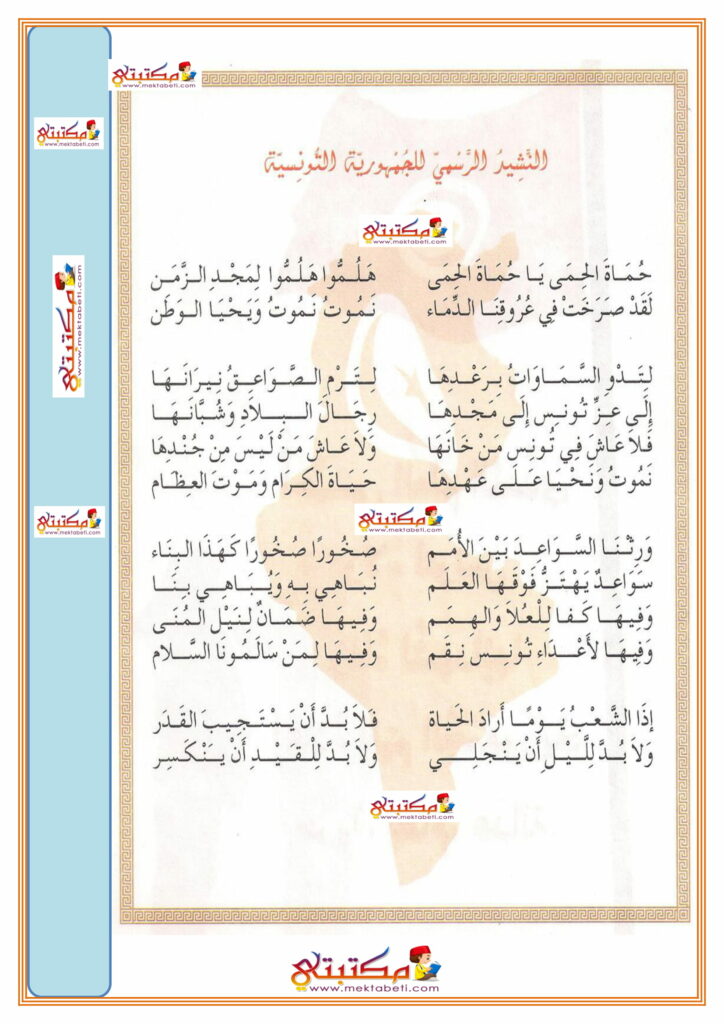 مكتبتي
www.mektabeti.com
مكتبتي
www.mektabeti.com
النَّشِيدُ الرَّسْمِيّ للجُمْهُورِيّة التُونِسِيّة
مكتبتي
www.mektabeti.com
حُمَاةَ الحِمَى يَا حُمَاةَ الحِمَى هَلُمُّوا هَلُمُّوا لِمَجْدِ الزَّمَن
لَقَدْ صَرَخَتْ فِي عُرُوقِنَا الدِّمَاء نَمُوتُ نَمُوتُ وَيَحْيَا الوَطَن
مكتبتي
www.mektabeti.com
لِتَدْوِ السَّمَاوَاتُ بِرَعْدِهَا لِتَرْمِ الصَّوَاعِقُ نِيرَانَهَا
إِلَى عِزِّ تُونِس إِلَى مَجْدِهَا رِجَالَ البِلَادِ وَشُبَّانَهَا
فَلَا عَاشَ فِي تُونِس مَنْ خَانَهَا وَلَا عَاشَ مَنْ لَيْسَ مِنْ جُنْدِهَا
نَمُوتُ وَنَحْيَا عَلَى عَهْدِهَا حَيَاةَ الكِرَام وَمَوْتَ العِظَام
مكتبتي
www.mektabeti.com
مكتبتي
www.mektabeti.com
وَرِثْنَا السَّوَاعِدَ بَيْنَ الأُمَم صُخُورًا صُخُورًا كَهَذَا البِنَاء
سَوَاعِدٌ يَهْتَزُّ فَوْقَهَا العَلَم نُبَاهِي بِهِ وَيُبَاهِي بِنَا
وَفِيهَا كَفَا لِلْعُلَا وَالهِمَم وَفِيهَا ضَمَانٌ لِنَيْلِ المُنَى
وَفِيهَا لأَعْدَاءِ تُونِس نِقَم وَفِيهَا لِمَنْ سَالَمُونَا السَّلَام
إذَا الشَّعْبُ يَوْمًا أَرَادَ الحَيَاة فَلَا بُدَّ أَنْ يَسْتَجِيبَ القَدَر
وَلَا بُدَّ لِلَّيْلِ أَنْ يَنْجَلِي وَلَا بُدَّ لِلْقَيْدِ أَنْ يَنْكَسِر
مكتبتي
www.mektabeti.com
مكتبتي
www.mektabeti.com